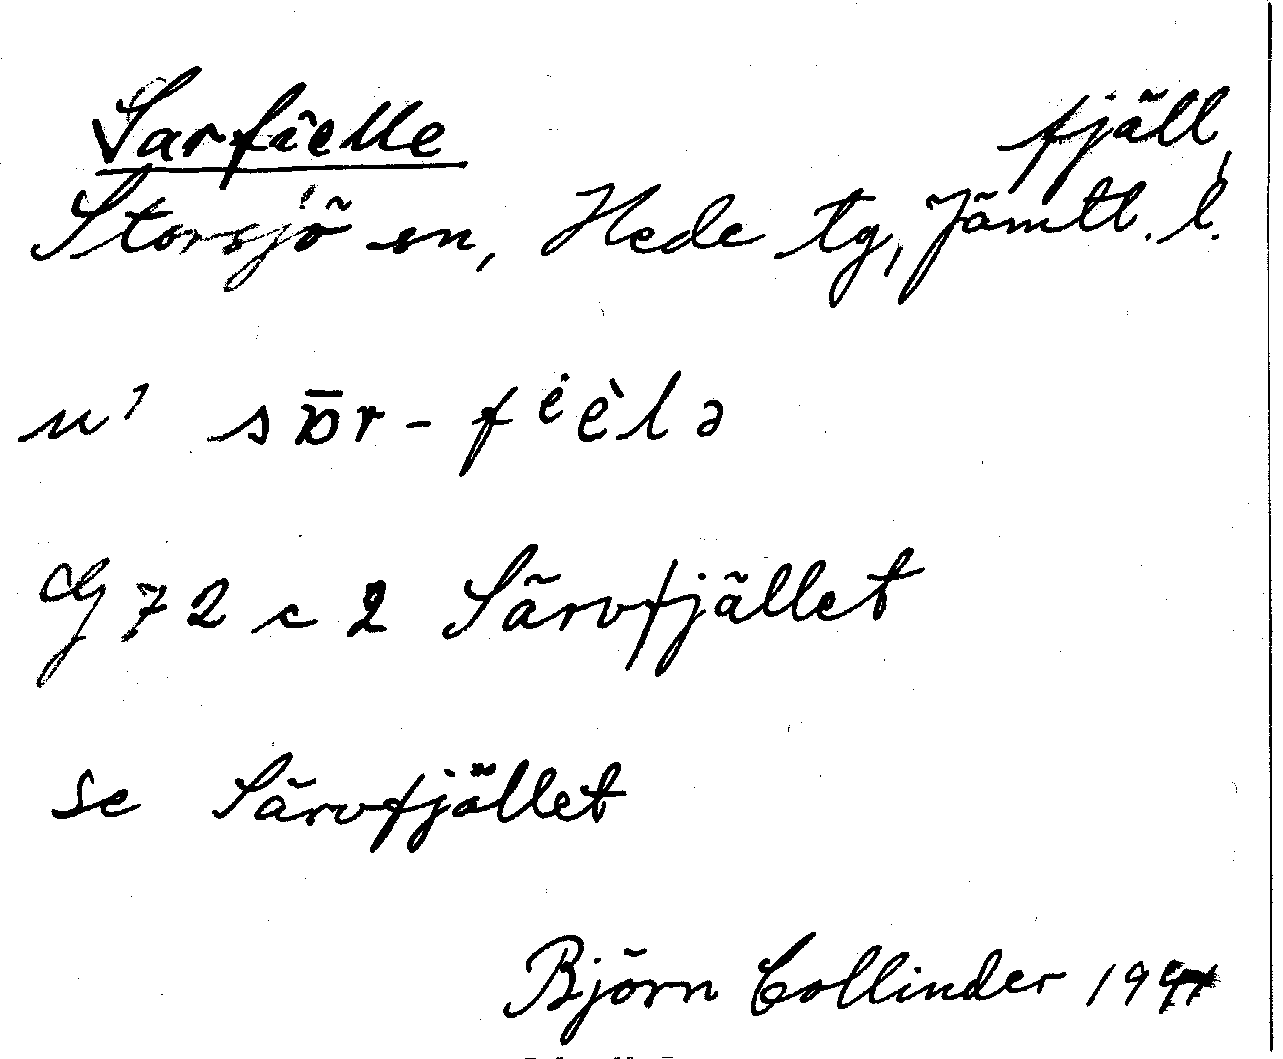 Sarfîelle fjäll,
Storsjö sn, Hede tg, Jämtl. l.
n' sb̄r-fⁱèlə
G 72 c 2 Särvfjället
se Särvfjället
Björn Collinder